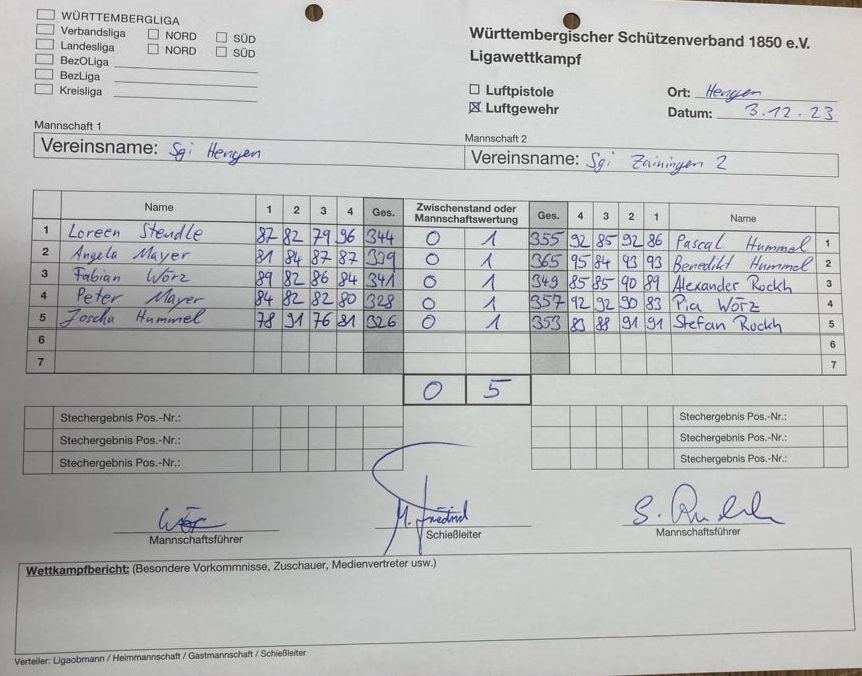 WÜRTTEMBERGLIGA
Verbandsliga NORD SÜD
Landesliga NORD SÜD
BezOLiga
BezLiga
Kreisliga
Württembergischer Schützenverband 1850 e.V.
Ligawettkampf
Luftpistole
Luftgewehr
Ort: Hengen
Datum: 3.12.23
Mannschaft 1
Vereinsname: Sgi Hengen
Mannschaft 2
Vereinsname: Sgi Zainingen 2
Name 1 2 3 4 Ges. Zwischenstand oder Mannschaftswertung Ges. 4 3 2 1 Name
1 Loreen Stendle 87 82 79 96 344 0 1 355 92 85 92 86 Pascal Hummel 1
2 Angela Mayer 81 84 87 87 339 0 1 365 95 84 93 93 Benedikt Hummel 2
3 Fabian Wörz 89 82 86 84 341 0 1 349 85 85 90 89 Alexander Rockh 3
4 Peter Mayer 84 82 82 80 328 0 1 357 92 92 90 83 Pia Wörz 4
5 Joscha Hummel 78 91 76 81 326 0 1 353 83 88 91 91 Stefan Rockh 5
6 6
7 7
0 5
Stechergebnis Pos.-Nr.: Stechergebnis Pos.-Nr.:
Stechergebnis Pos.-Nr.: Stechergebnis Pos.-Nr.:
Stechergebnis Pos.-Nr.: Stechergebnis Pos.-Nr.:
M. Friedrich
Mannschaftsführer Schießleiter Mannschaftsführer
Wettkampfbericht: (Besondere Vorkommnisse, Zuschauer, Medienvertreter usw.)
Verteiler: Ligaobmann / Heimmannschaft / Gastmannschaft / Schießleiter